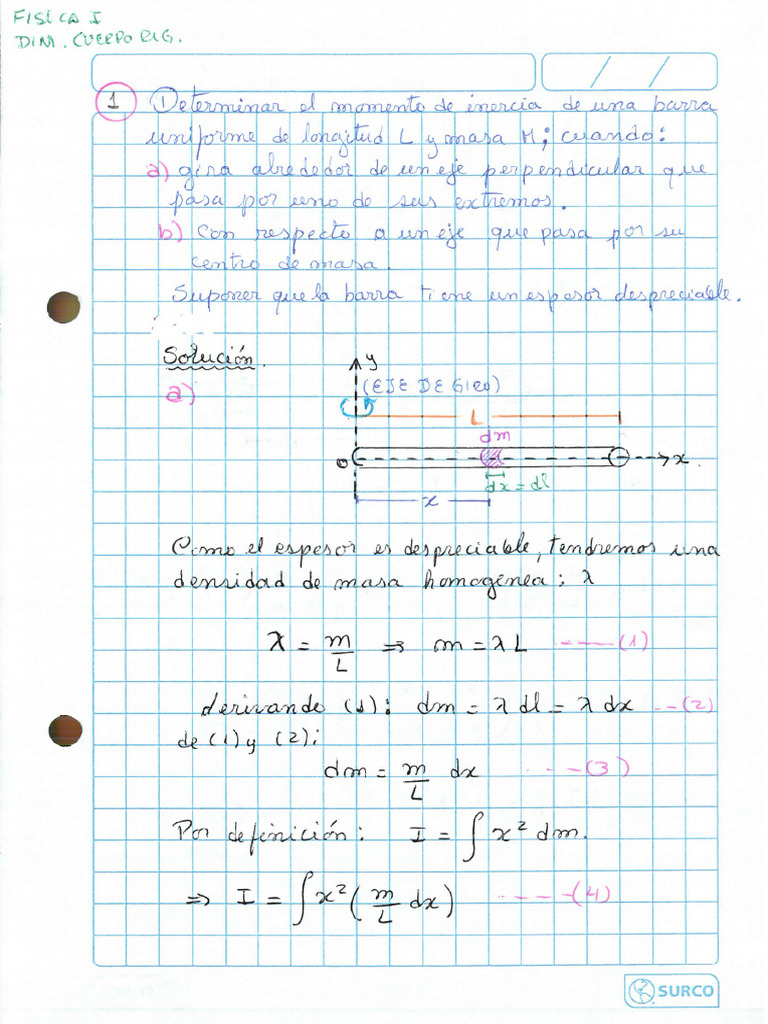 FISICA I
DIM. CUERPO RIG.
1 Determinar el momento de inercia de una barra
uniforme de longitud L y masa M; cuando:
a) gira alrededor de un eje perpendicular que
pasa por uno de sus extremos.
b) con respecto a un eje que pasa por su
centro de masa.
Suponer que la barra tiene un espesor despreciable.
Solución.
a)
y
(EJE DE GIRO)
L
dm
0
x
dx = dl
x
Como el espesor es despreciable, tendremos una
densidad de masa homogénea: λ
λ = m/L ⇒ m = λ L ----(1)
derivando (1): dm = λ dl = λ dx --(2)
de (1) y (2):
dm = m/L dx ---(3)
Por definición: I = ∫ x² dm.
⇒ I = ∫ x² (m/L dx) ----(4)
SURCO